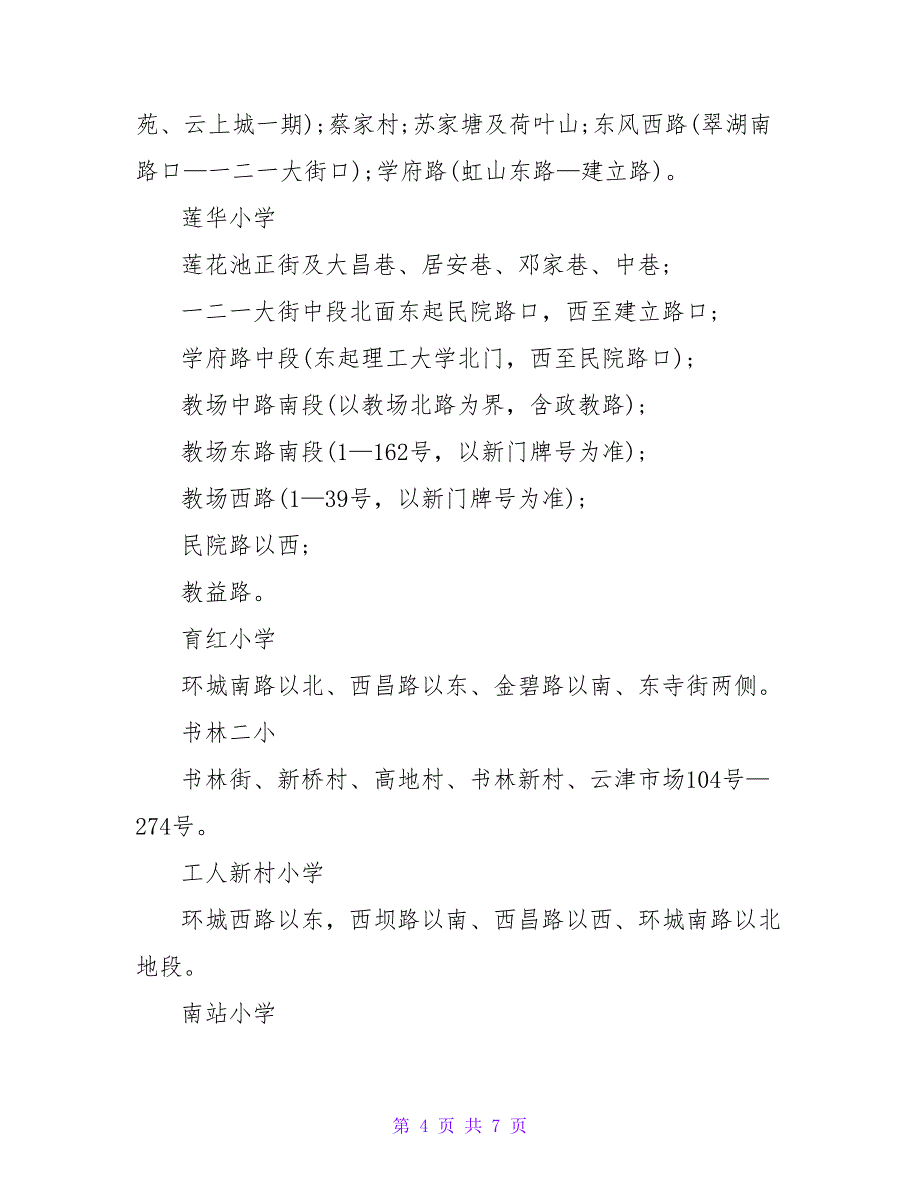 苑、云上城一期);蔡家村;苏家塘及荷叶山;东风西路(翠湖南
路口—一二一大街口);学府路(虹山东路—建立路)。
莲华小学
莲花池正街及大昌巷、居安巷、邓家巷、中巷;
一二一大街中段北面东起民院路口，西至建立路口;
学府路中段(东起理工大学北门，西至民院路口);
教场中路南段(以教场北路为界，含政教路);
教场东路南段(1—162号，以新门牌号为准);
教场西路(1—39号，以新门牌号为准);
民院路以西;
教益路。
育红小学
环城南路以北、西昌路以东、金碧路以南、东寺街两侧。
书林二小
书林街、新桥村、高地村、书林新村、云津市场104号—
274号。
工人新村小学
环城西路以东，西坝路以南、西昌路以西、环城南路以北
地段。
南站小学
第 4 页 共 7 页